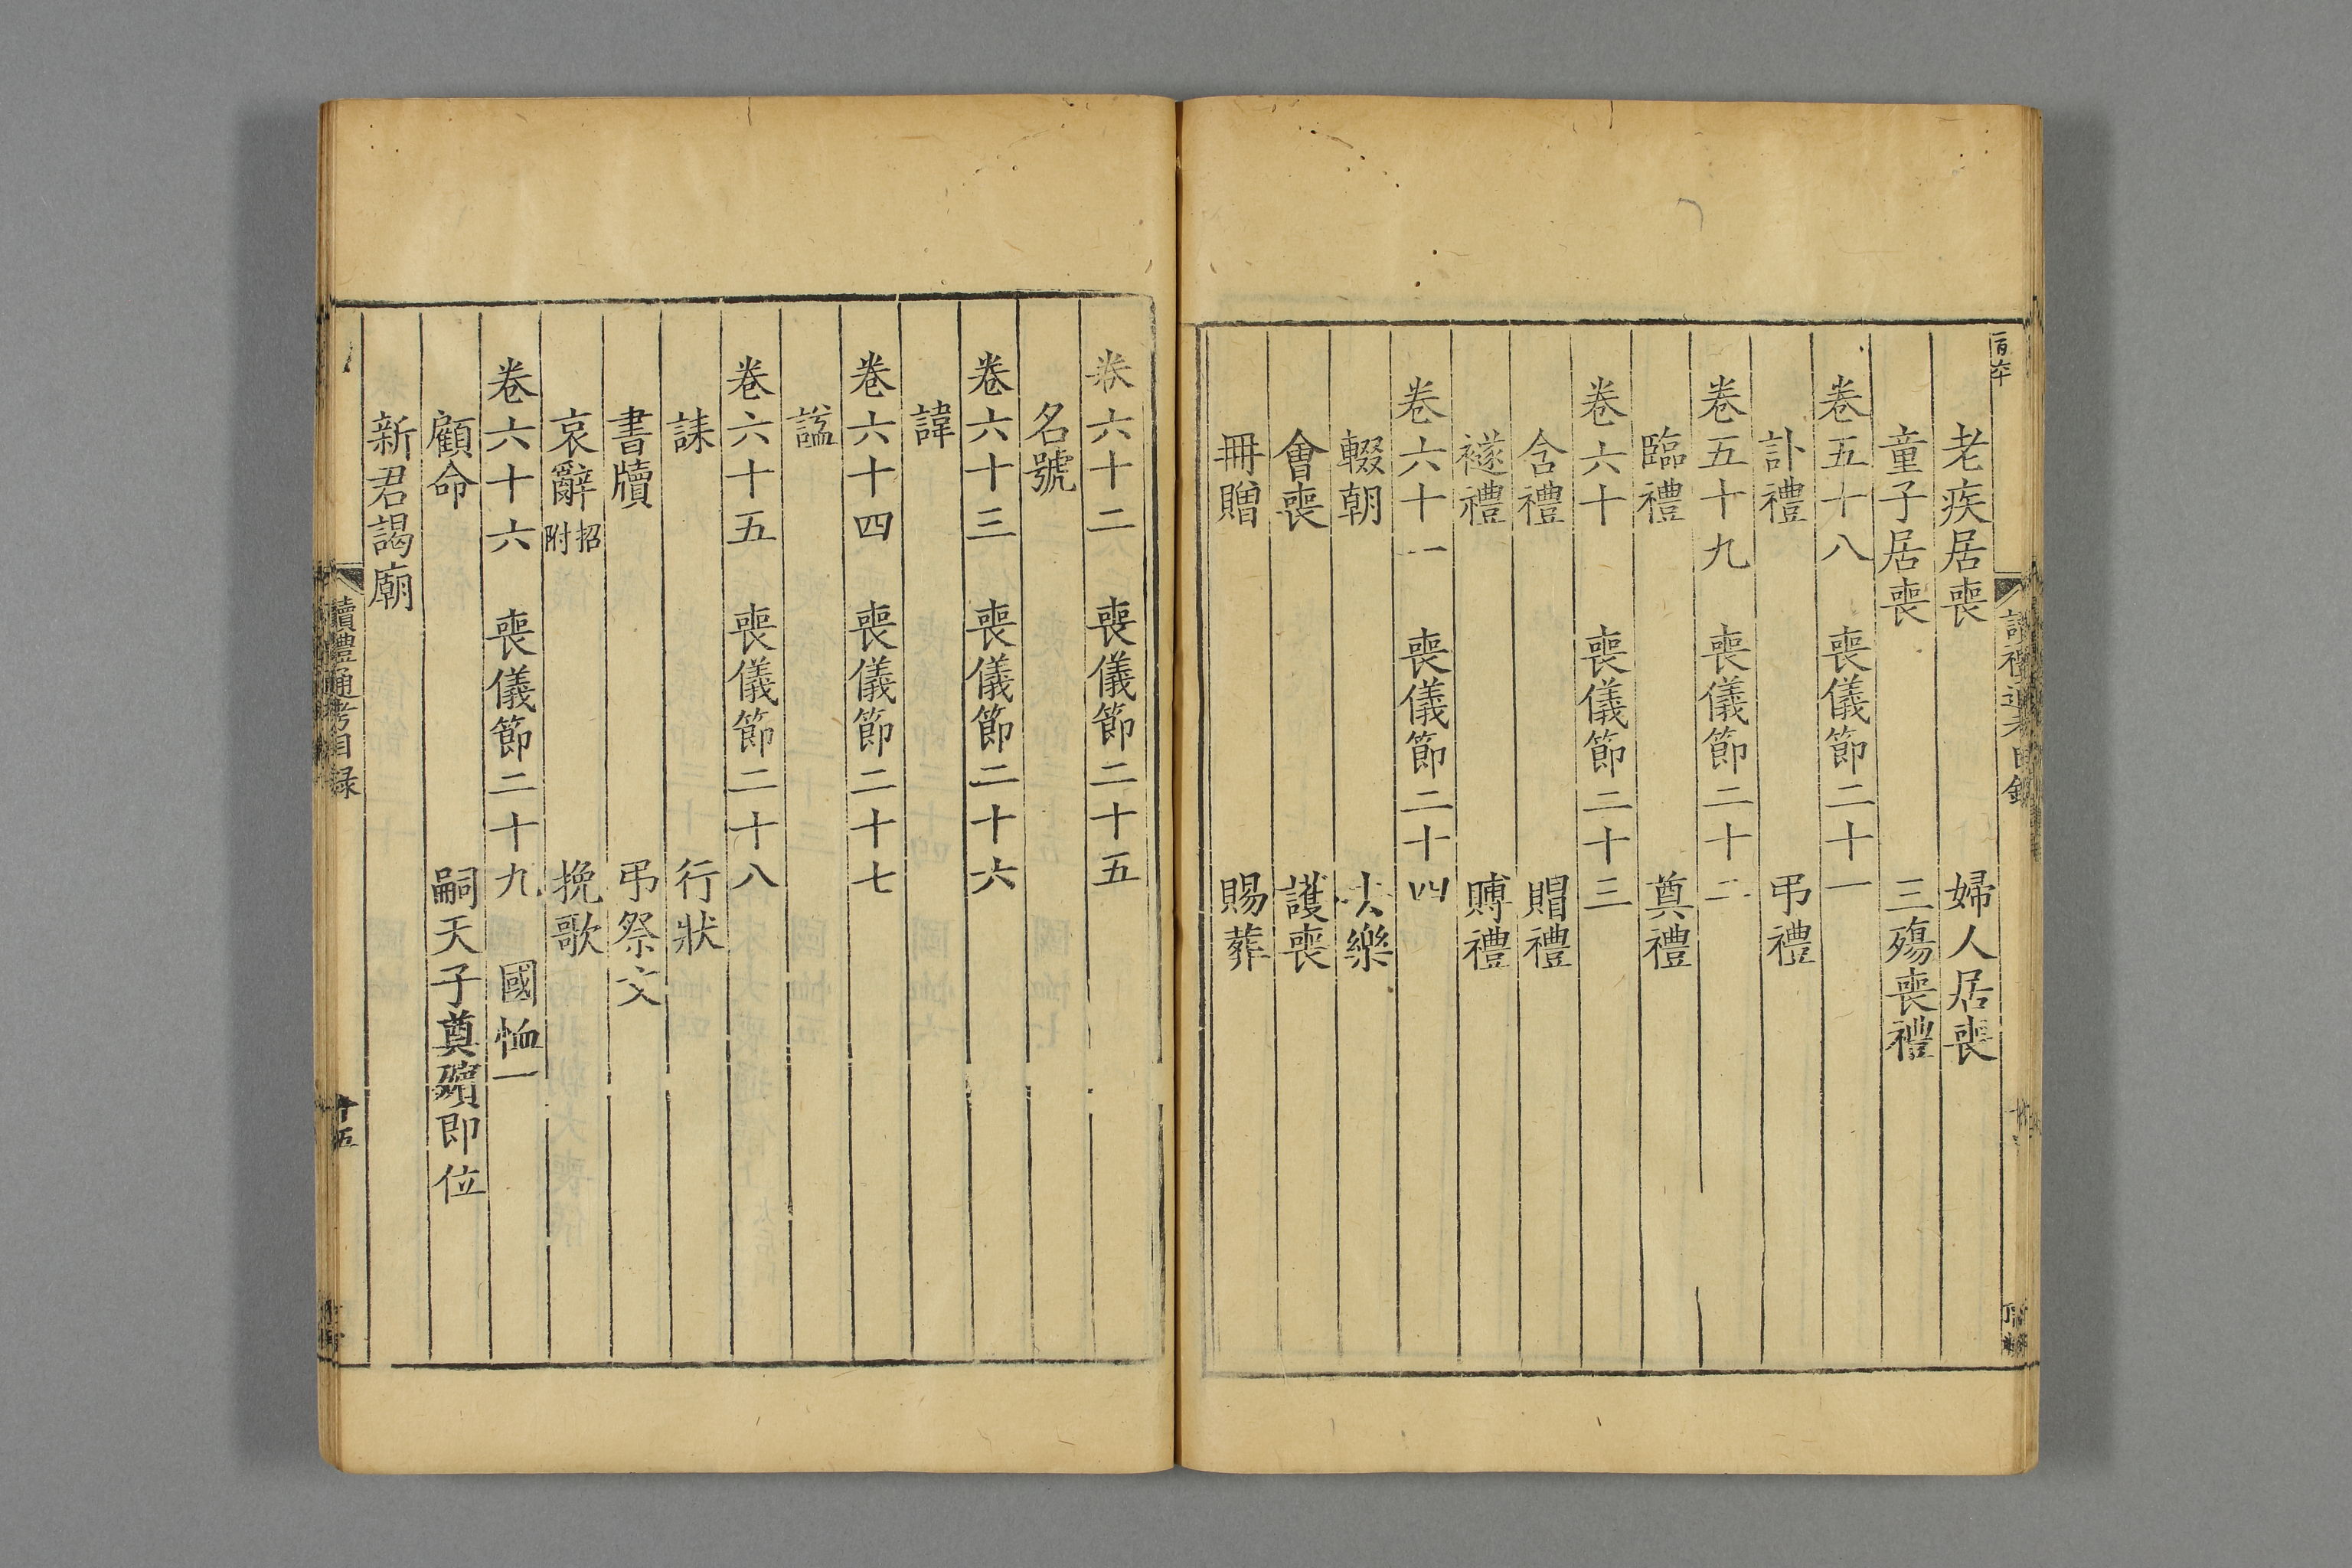 老疾居喪 婦人居喪
童子居喪 三殤喪禮
卷五十八 喪儀節二十一
訃禮 弔禮
卷五十九 喪儀節二十二
臨禮 奠禮
卷六十 喪儀節二十三
含禮 賵禮
襚禮 賻禮
卷六十一 喪儀節二十四
輟朝 去樂
會喪 護喪
冊贈 賜葬
卷六十二 喪儀節二十五
名號
卷六十三 喪儀節二十六
諱
卷六十四 喪儀節二十七
諡
卷六十五 喪儀節二十八
誄 行狀
書牘 弔祭文
哀辭招附 挽歌
卷六十六 喪儀節二十九 國恤一
顧命 嗣天子奠殯即位
新君謁廟
讀禮通考目録
十五